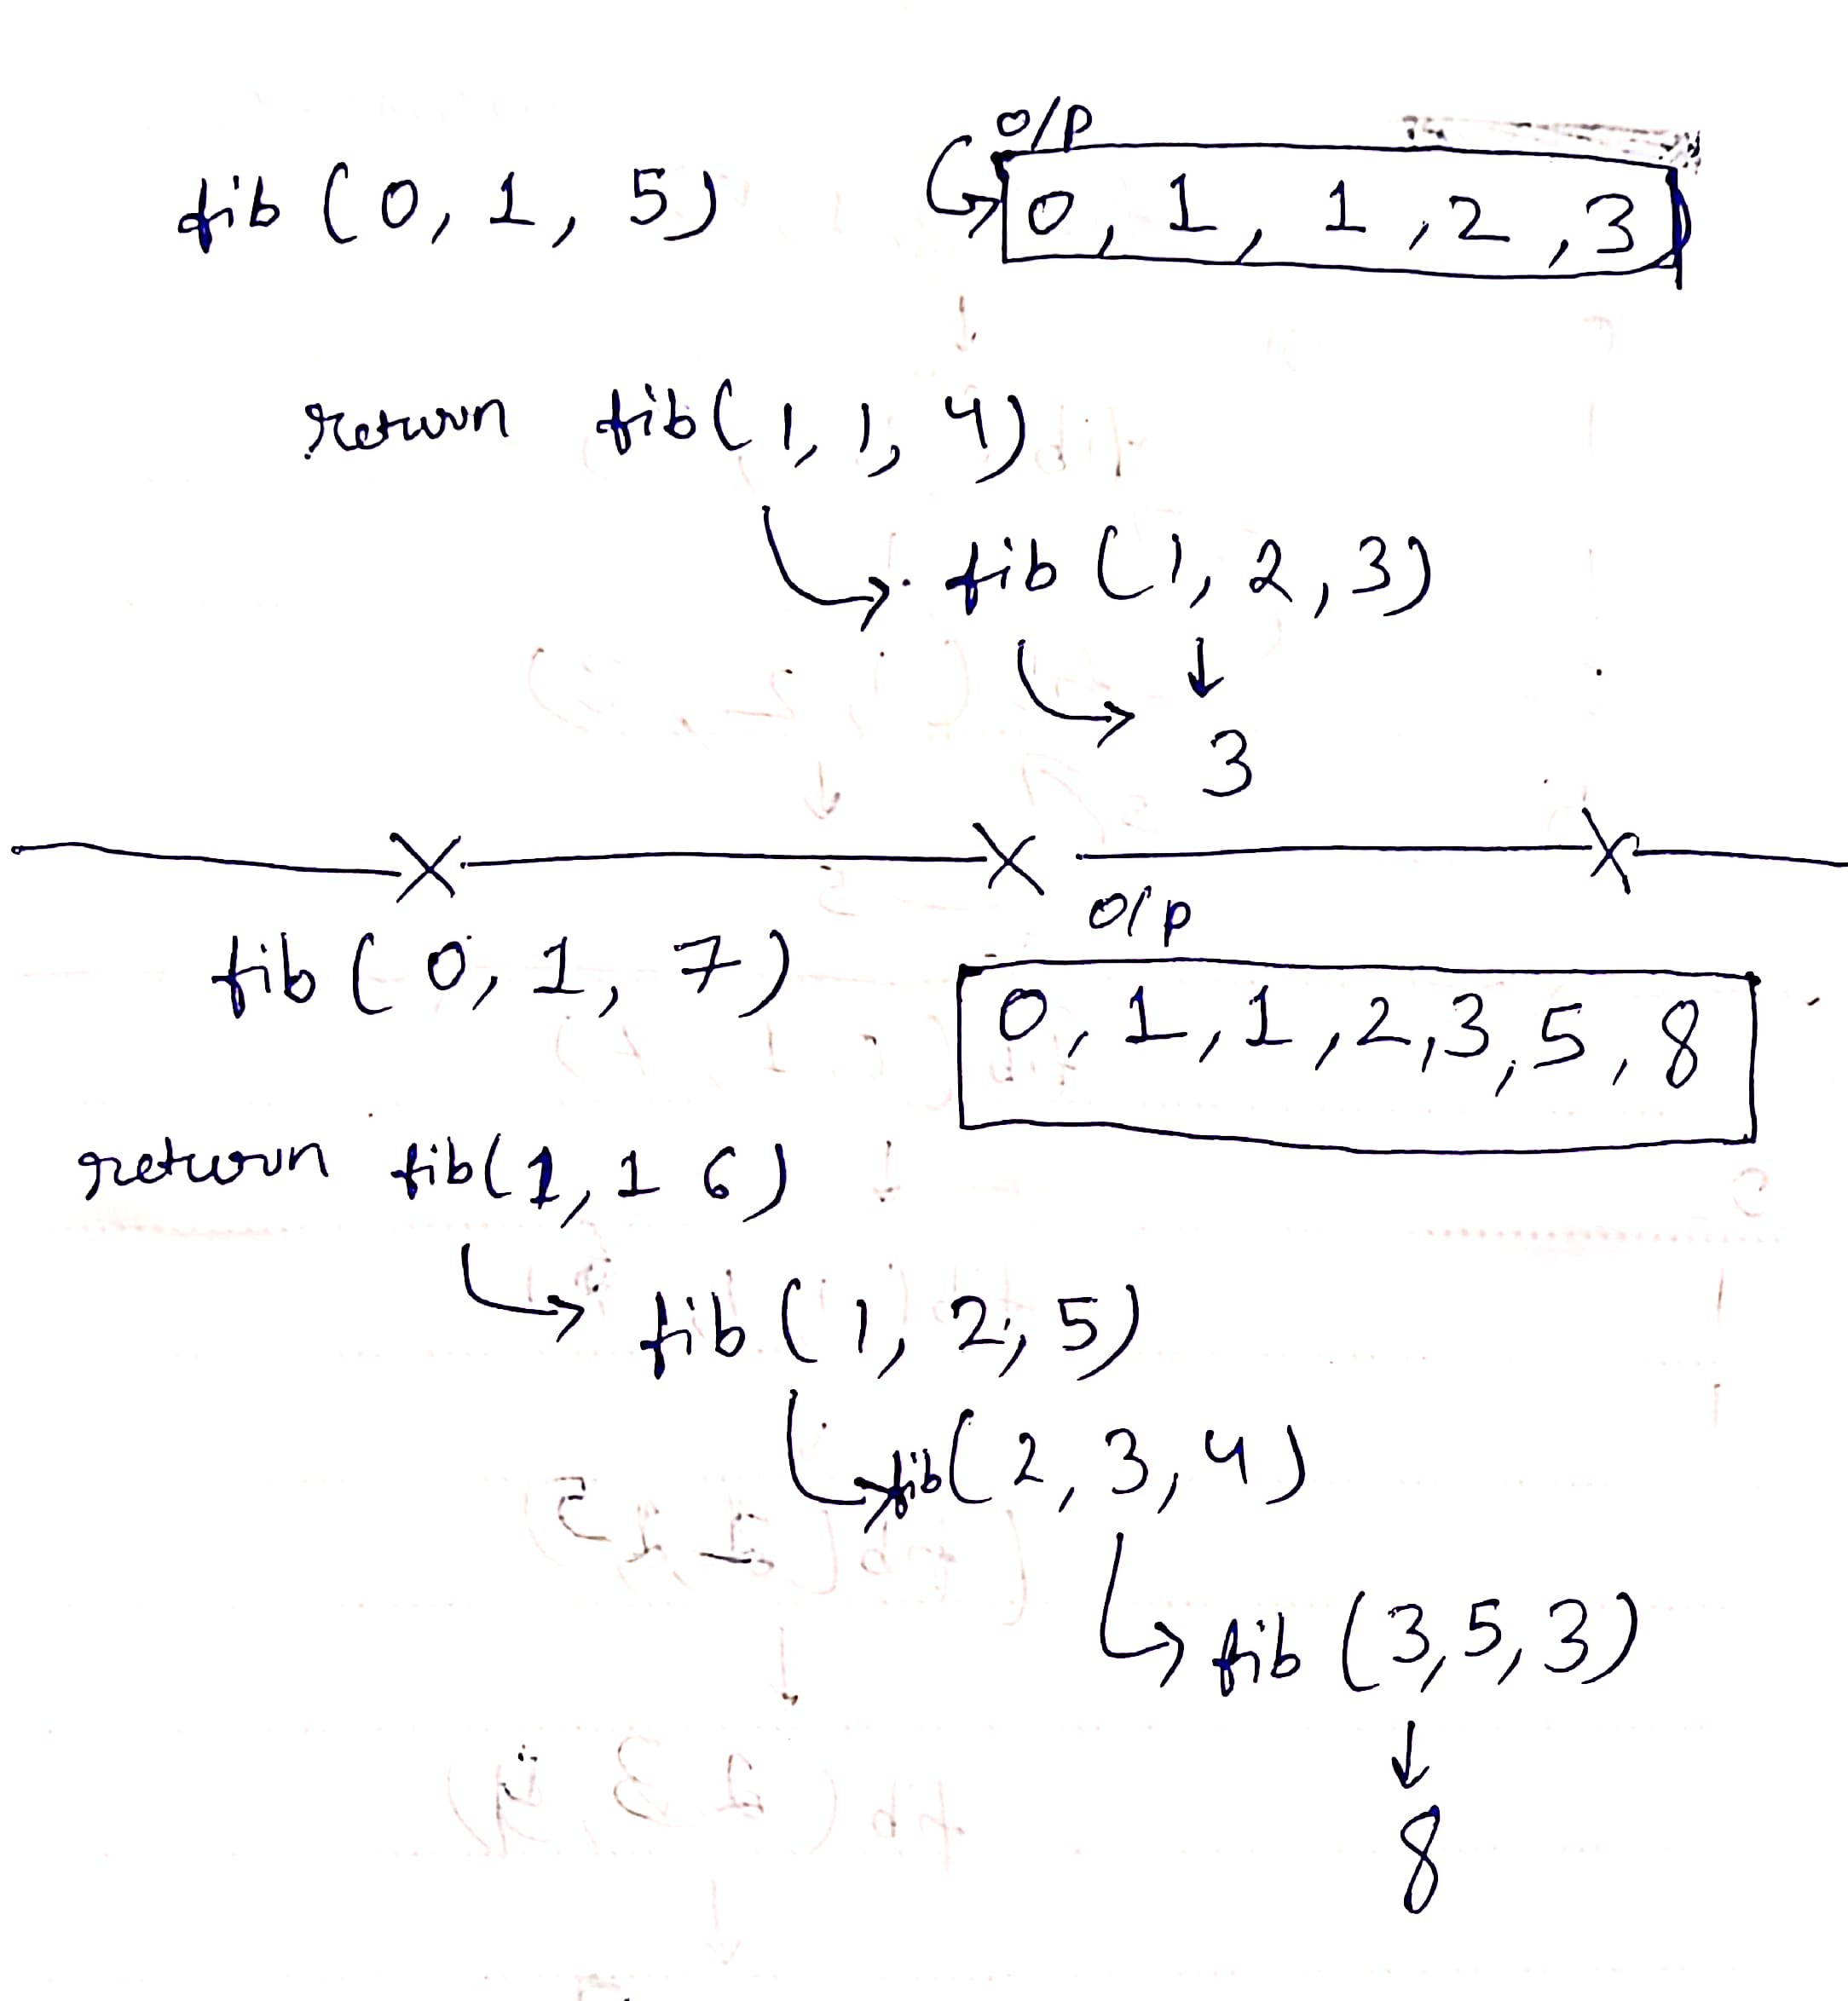 o/p
fib (0, 1, 5) 0, 1, 1, 2, 3
return fib(1, 1, 4)
fib (1, 2, 3)
3
o/p
fib (0, 1, 7) 0, 1, 1, 2, 3, 5, 8
return fib(1, 1 6)
fib (1, 2, 5)
fib(2, 3, 4)
fib (3, 5, 3)
8